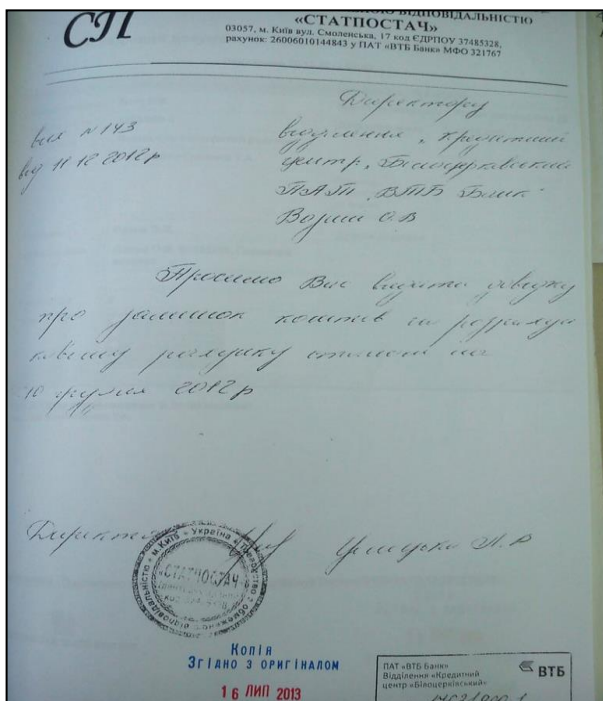 СП
ВІДПОВІДАЛЬНІСТЮ
«СТАТПОСТАЧ»
03057, м. Київ вул. Смоленська, 17 код ЄДРПОУ 37485328,
рахунок: 26006010144843 у ПАТ «ВТБ Банк» МФО 321767
Директору
вих №143
від 11 12 2012р
відділення „Кредитний
центр „Білоцерківський
ПАТ „ВТБ Банк"
О.В
Просимо Вас видати довідку
про залишок коштів на розрахун
ковому рахунку станом на
10 грудня 2012р
Директор
Україна
м. Київ
«СТАТПОСТАЧ»
Копія
Згідно з оригіналом
16 ЛИП 2013
ПАТ «ВТБ Банк»
Відділення «Кредитний
центр «Білоцерківський»
ВТБ